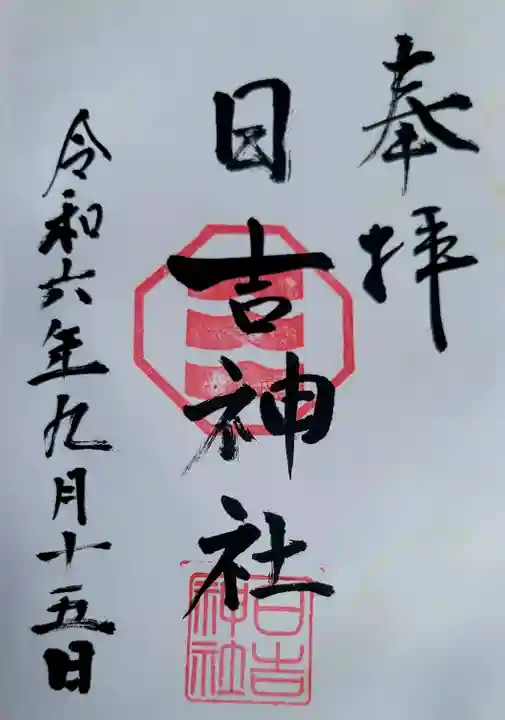 奉拝
日吉神社
日吉神社
令和六年九月十五日